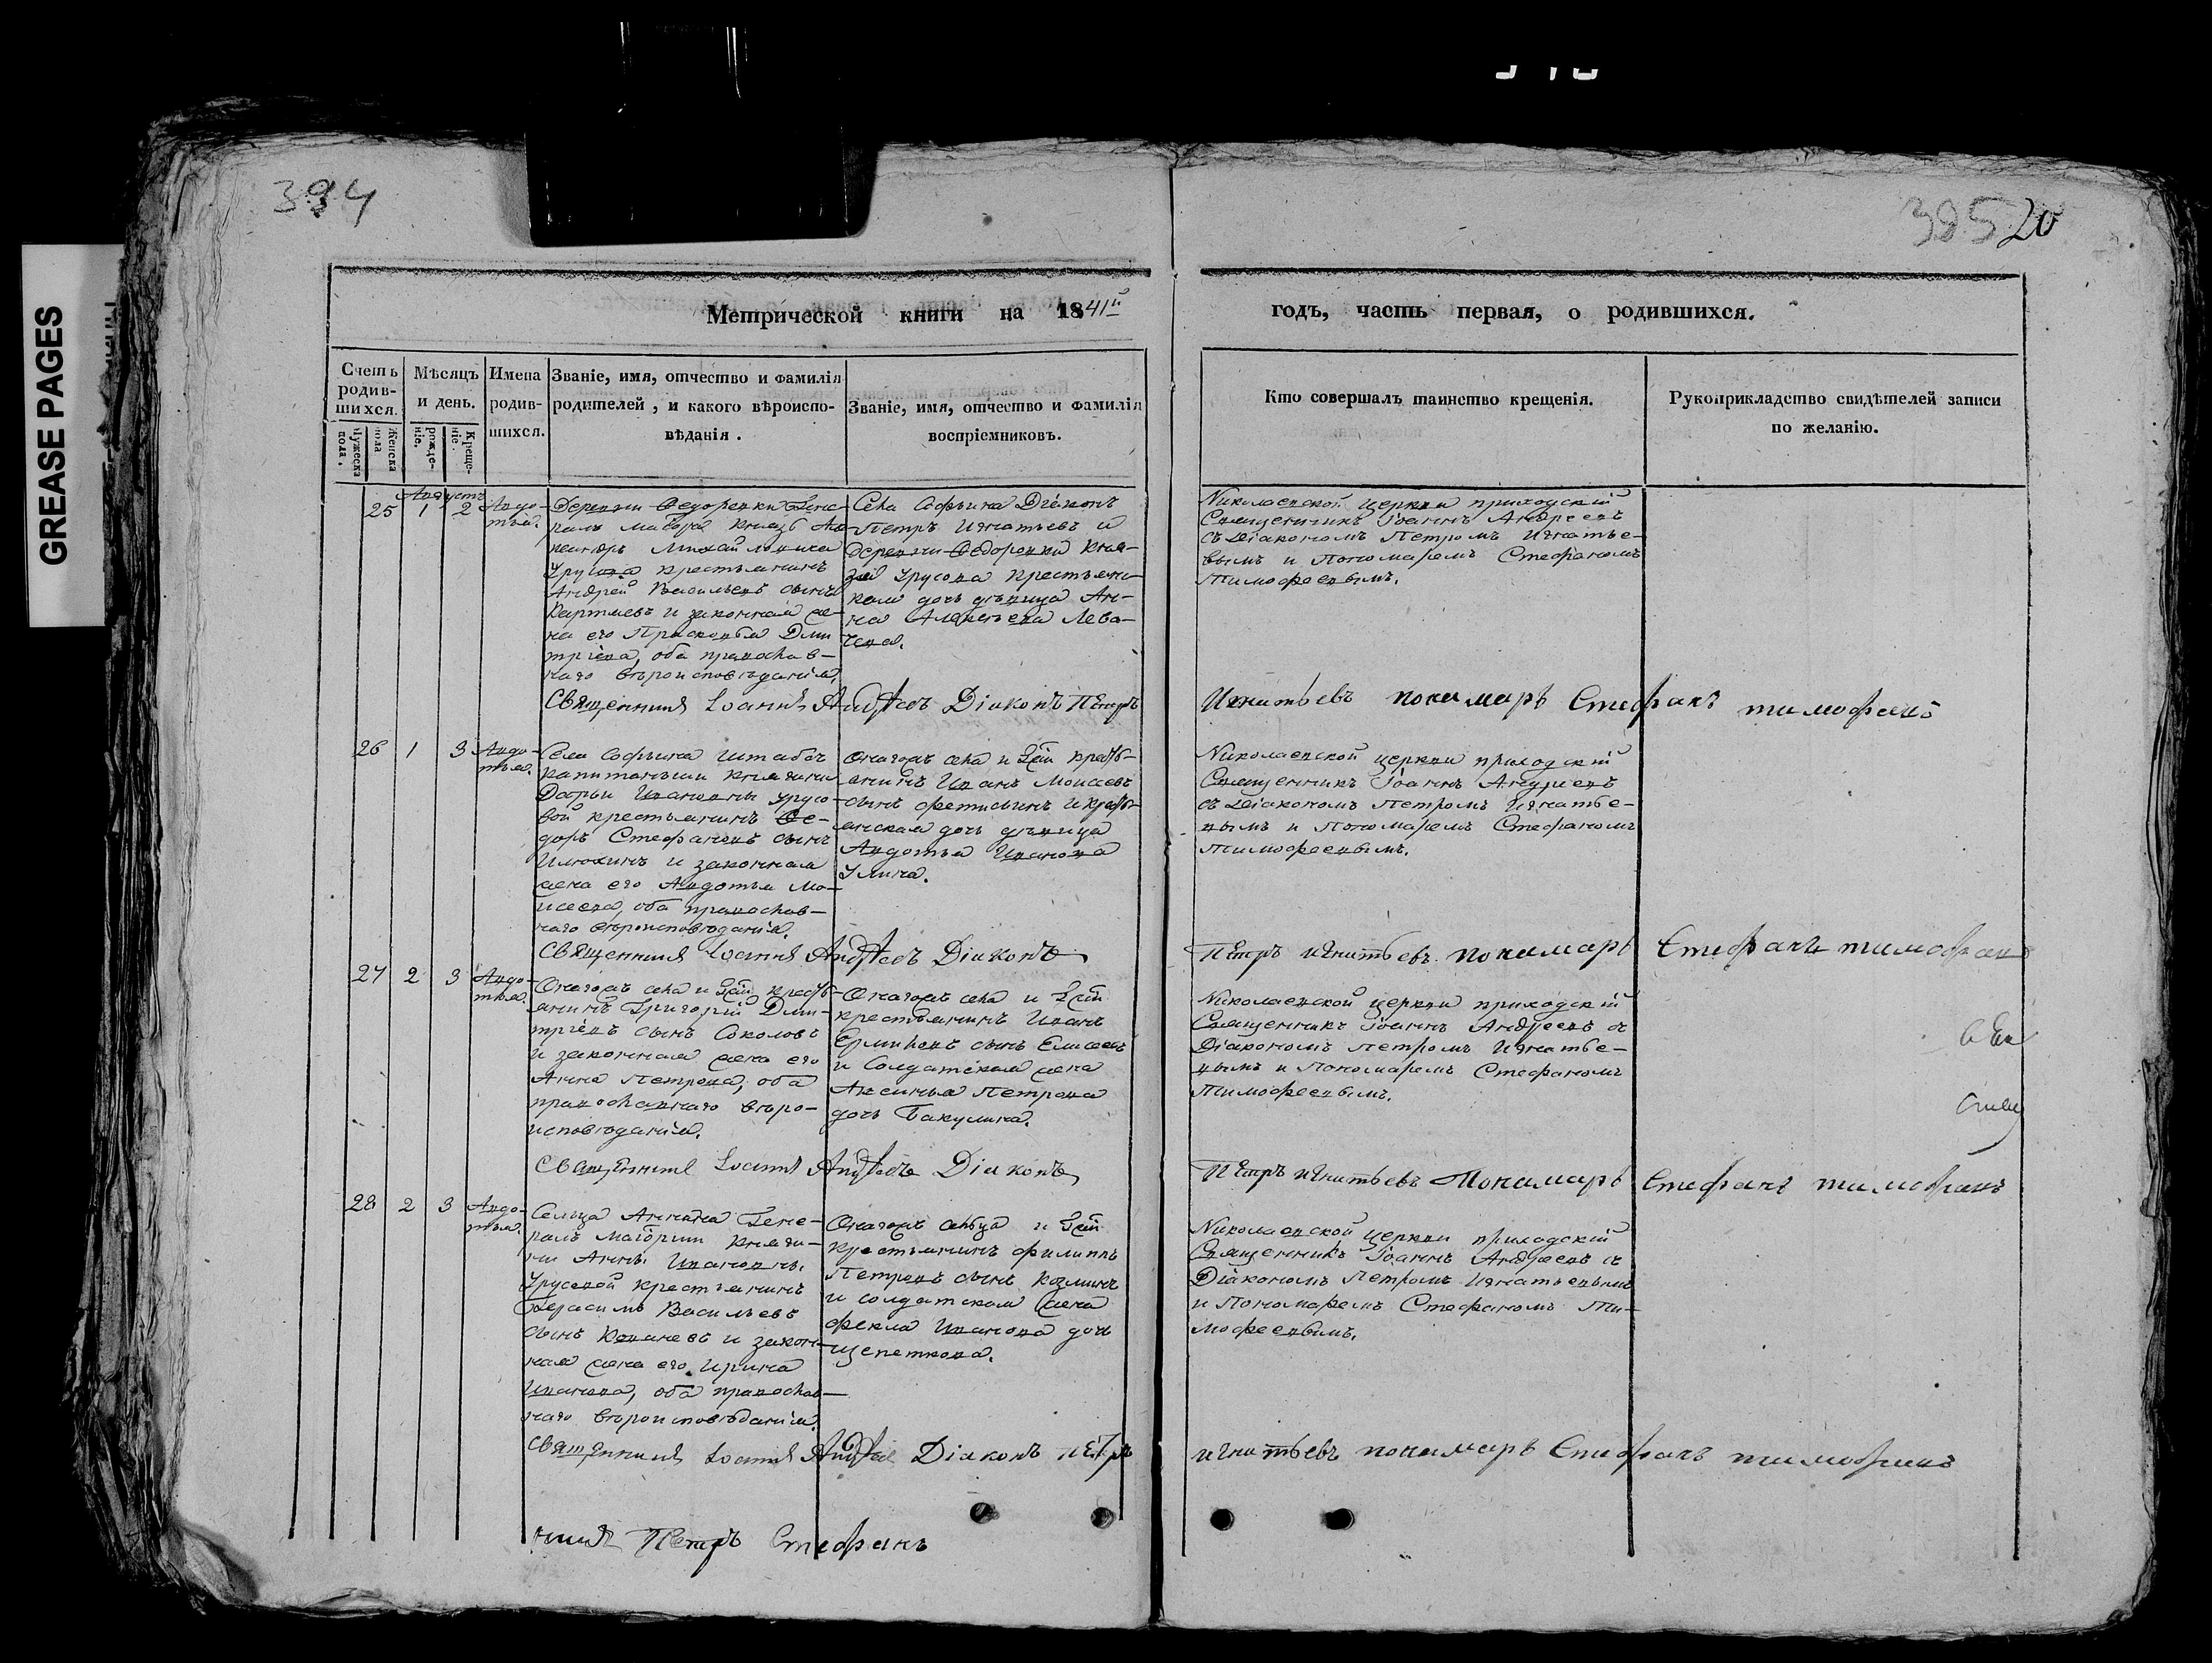 GREASE PAGES
394
395 20
Метрической книги на 1841й
годъ, часть первая, о родившихся.
Счетъ родив-шихся.
Мѣсяцъ и день.
Имена родив-шихся.
Званіе, имя, отчество и фамилія родителей, и какого вѣроиспо-вѣданія.
Званіе, имя, отчество и фамилія воспріемниковъ.
Кто совершалъ таинство крещенія.
Рукоприкладство свидѣтелей записи по желанію.
Мужеска пола.
Женска пола
рожде-ніе.
Креще-ніе.
Августъ
25 1 2 Авдо-
тья.
Деревни Федоровки Гене-
ралъ Маіора Князь Але
ксандръ Михайловича
Урусова крестьянинъ
Андрей Васильевъ сынъ
и законная же-
на его Прасковья Дми
тріева, оба православ-
наго вѣроисповѣданія.
Села Софьина Діяконъ
Петръ Игнатьевъ и
деревни Федоровки Кня-
зя Урусова крестьянс-
кая дочь дѣвица Ан-
на Алексѣева Лева-
чева.
Николаевской церкви приходскій
Священникъ Іоаннъ Андреевъ
съ Діакономъ Петромъ Игнатье-
вымъ и Пономаремъ Стефаномъ
Тимофеевымъ.
Священникъ Іоаннъ Андреевъ Діаконъ Петръ
Игнатьевъ понамарь Стефанъ тимофеевъ
26 1 3 Авдо-
тья.
Села Софьина Штабсъ
капитанши княгини
Дарьи Ивановны Урусо-
вой крестьянинъ Фе-
доръ Стефановъ сынъ
Илюхинъ и законная
жена его Авдотья Мо-
исеева, оба православ-
наго вѣроисповѣданія.
Онагожъ села и Гжи кресть-
янинъ Иванъ Моисеевъ
сынъ Фетисьинъ и кресть-
янская дочь дѣвица
Авдотья Иванова
Улина.
Николаевской церкви приходскій
Священникъ Іоаннъ Андреевъ
съ Діакономъ Петромъ Игнатье-
вымъ и Пономаремъ Стефаномъ
Тимофеевымъ.
Священникъ Іоаннъ Андреевъ Діаконъ
Петръ игнатьевъ понамарь Стефанъ тимофеевъ
27 2 3 Авдо-
тья.
Онагожъ села и Гжи кресть-
янинъ Григорій Дми-
тріевъ сынъ Соколовъ
и законная жена его
Анна Петрова, оба
православнаго вѣро-
исповѣданія.
Онагожъ села и Гжи
крестьянинъ Иванъ
Ермиловъ сынъ Елисеевъ
и Солдатская жена
Аксинья Петрова
дочь Бакулина.
Николаевской церкви приходскій
Священникъ Іоаннъ Андреевъ съ
Діакономъ Петромъ Игнатье-
вымъ и Пономаремъ Стефаномъ
Тимофеевымъ.
Священникъ Іоаннъ Андреевъ Діаконъ
Петръ игнатьевъ Понамарь Стефанъ тимофеевъ
28 2 3 Авдо-
тья.
Сельца Анкина Гене-
ралъ Маіорши княги-
ни Анны Ивановны
Урусовой крестьянинъ
Герасимъ Васильевъ
сынъ и закон-
ная жена его Ирина
Иванова, оба православ-
наго вѣроисповѣданія.
Онагожъ сельца и Гжи
крестьянинъ Филиппъ
Петровъ сынъ Козминъ
и солдатская жена
Фекла Иванова дочь
Щепеткова.
Николаевской церкви приходскій
Священникъ Іоаннъ Андреевъ съ
Діакономъ Петромъ Игнатьевымъ
и Пономаремъ Стефаномъ Ти-
мофеевымъ.
Священникъ Іоаннъ Андреевъ Діаконъ Петръ
игнатьевъ понамарь Стефанъ тимофеевъ
Петръ Стефанъ